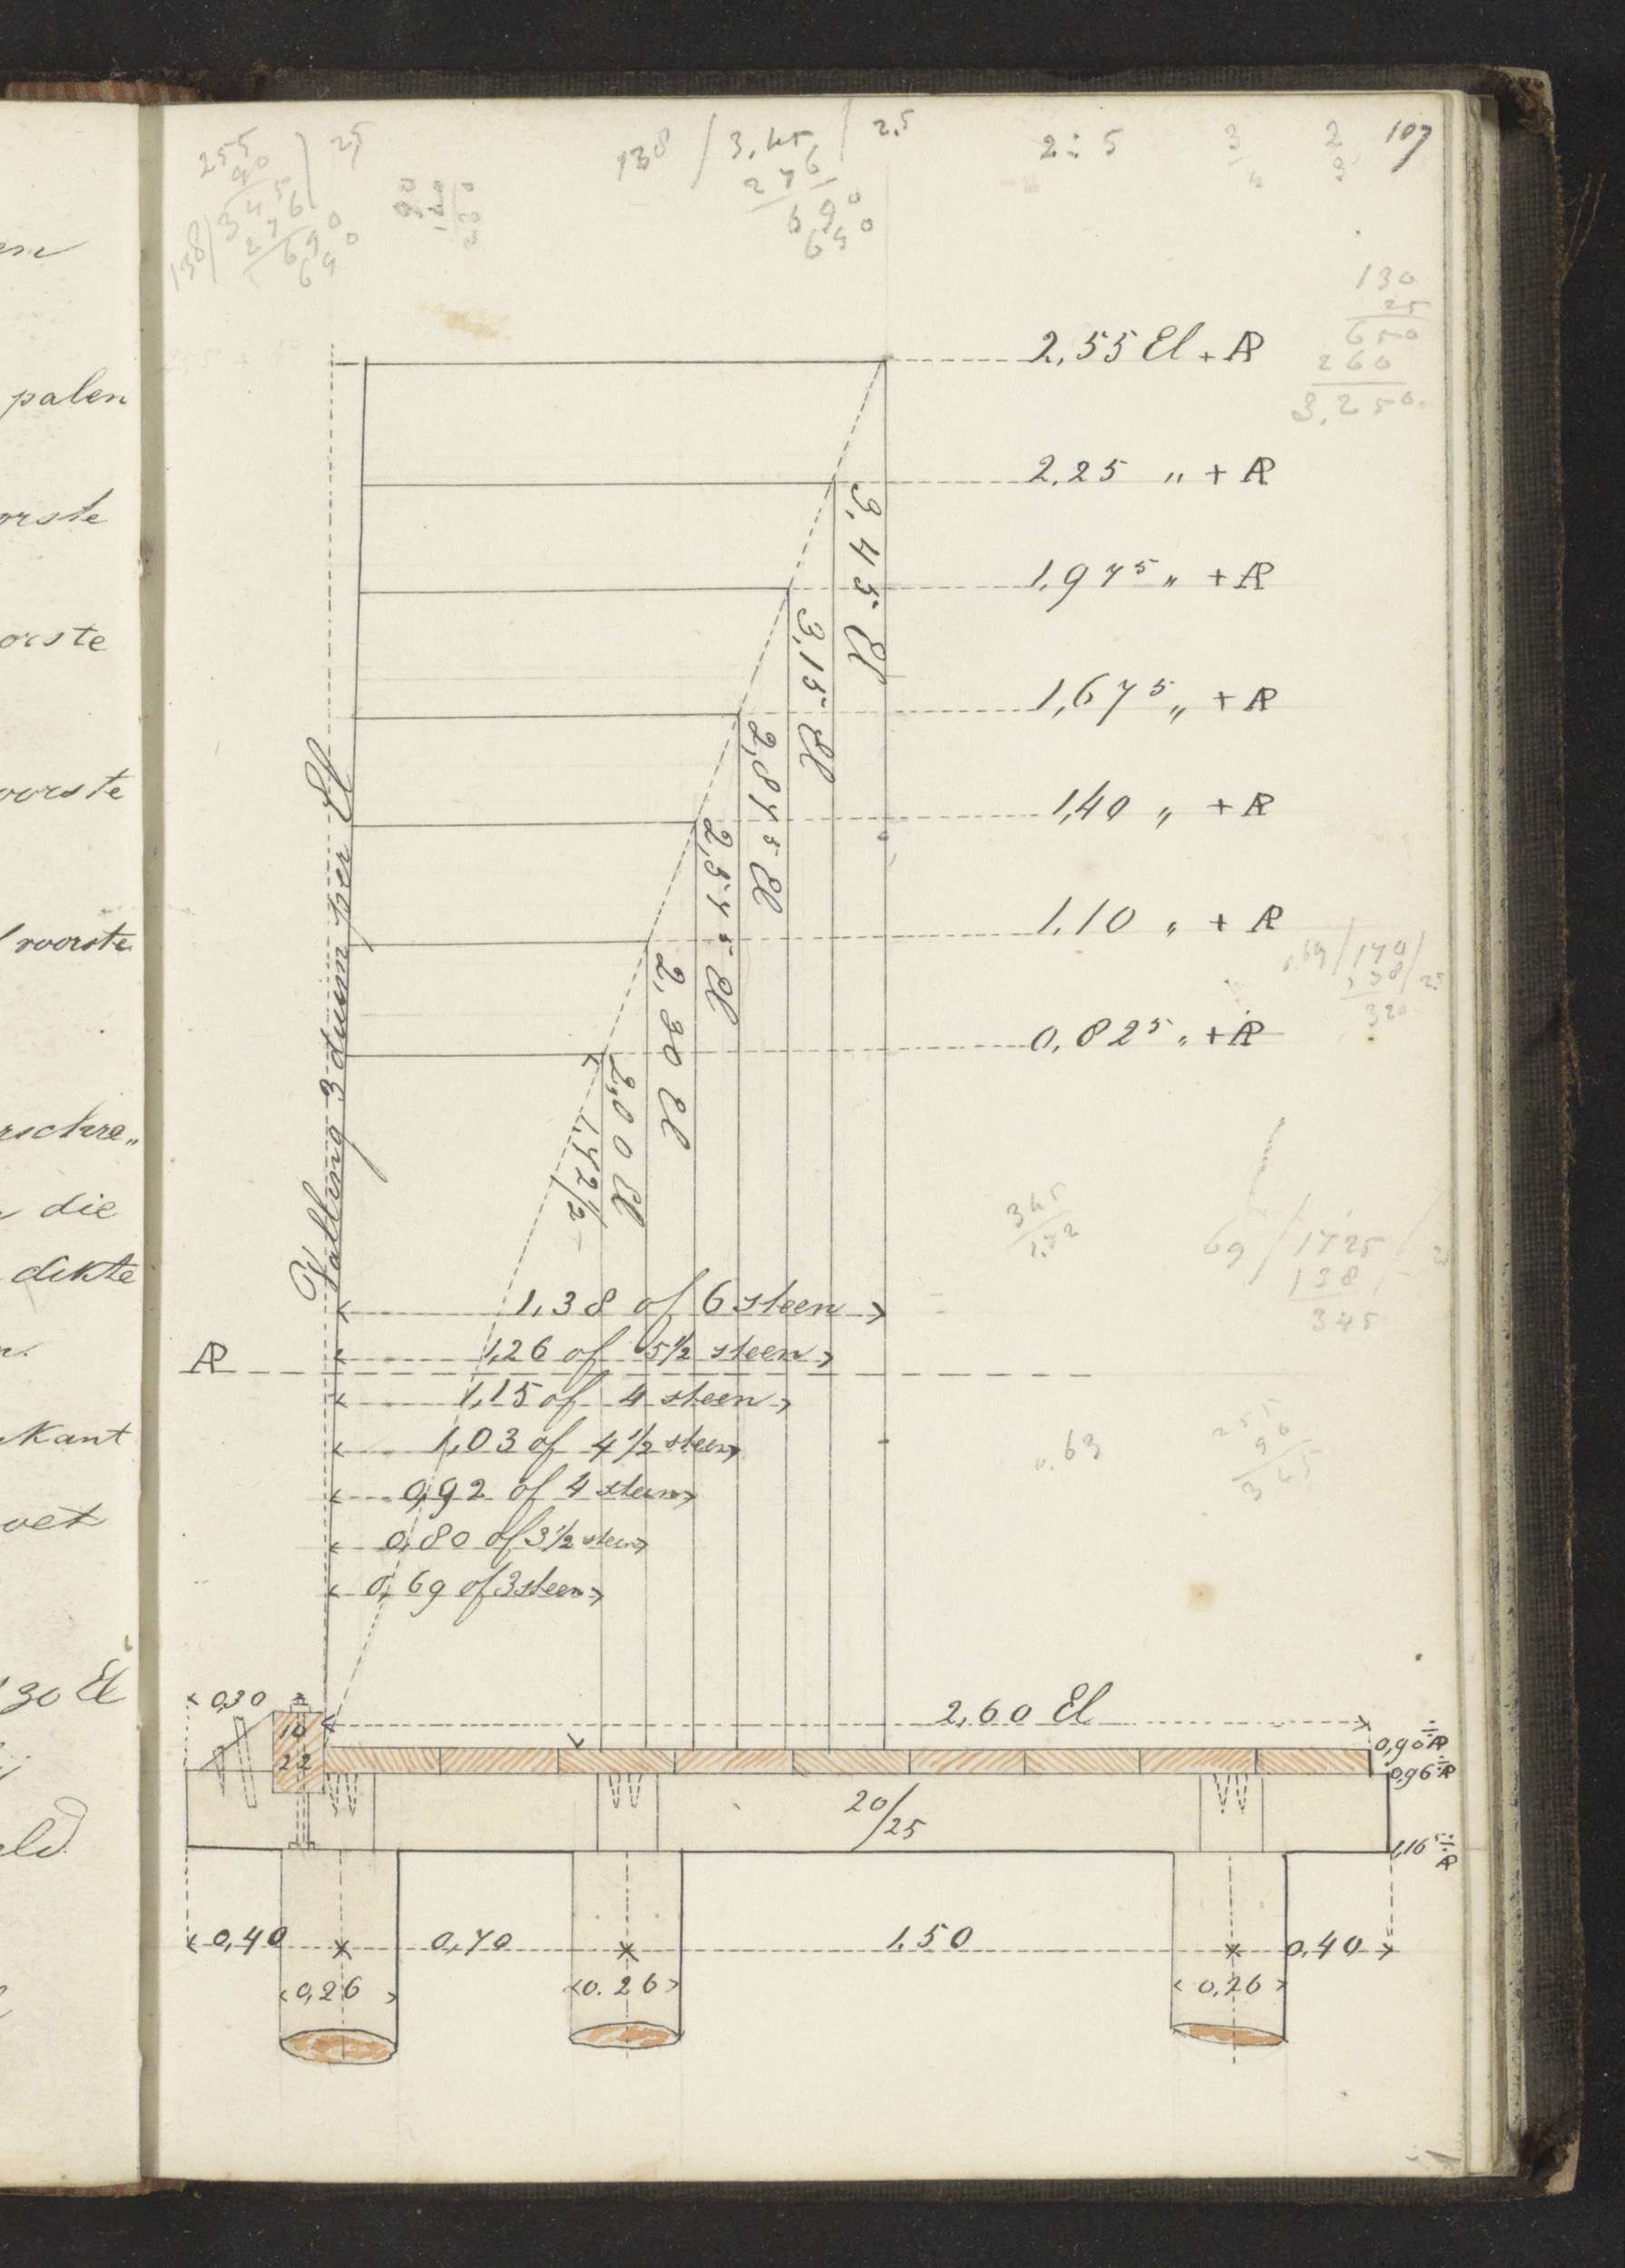 107
255
90
345
138
276
690
690
25
138 / 3,45 / 2.5
276
690
690
2 ÷ 5
3
4
2
3
130
25
650
260
3,250
2,55 El + AP
2,25 „ + AP
1,975 „ + AP
1,675 „ + AP
1,40 „ + AP
1,10 „ + AP
0,825 „ + AP
3,45 El
3,15 El
2,875 El
2,575 El
2,30 El
2,00 El
1,72½
Valling 3 duim per El
69 / 170 / 25
138
320
345
1,72
69 / 1725 /
138
345
1,38 of 6 steen
1,26 of 5½ steen
AP
1,15 of 4 steen
1,03 of 4½ steen
0,92 of 4 steen
0,80 of 3½ steen
0,69 of 3 steen
63
255
90
345
0,30
10
22
2,60 El
0,90 ÷ AP
0,96 ÷ AP
20/25
1,16⁵ ÷ AP
0,40
0,70
1,50
0,40
0,26
0.26
0,26
palen
orste
orste
oorste
voorste
die
dikte
kant
oet
30 El